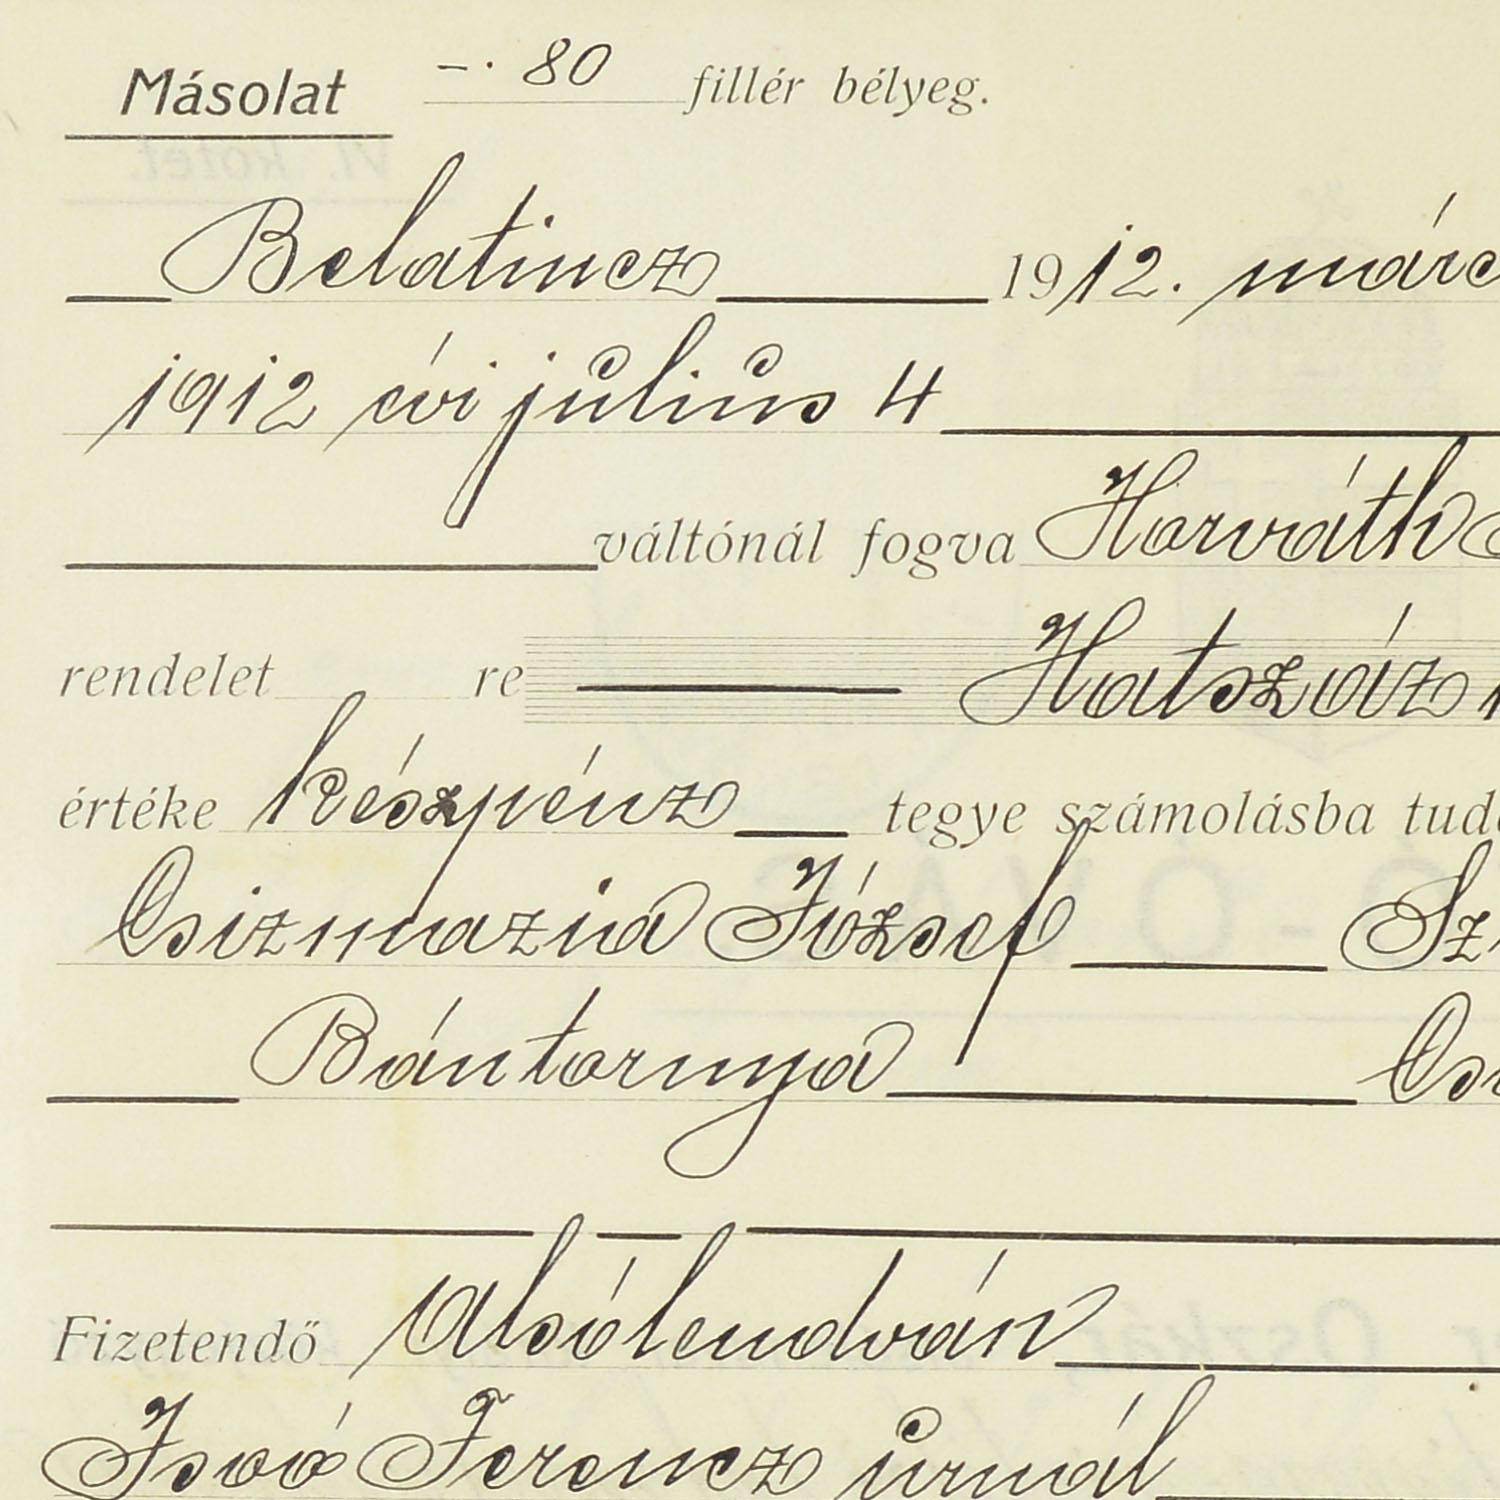 Másolat –. 80 fillér bélyeg.
Belatincz 1912. márc
1912 évi július 4
váltónál fogva Horváth
rendelet re Hatszáz
értéke készpénz tegye számolásba tud
Csizmazia József Sz
Bántornya Cs
Fizetendő Alsólendván
Ivó Ferencz úrnál